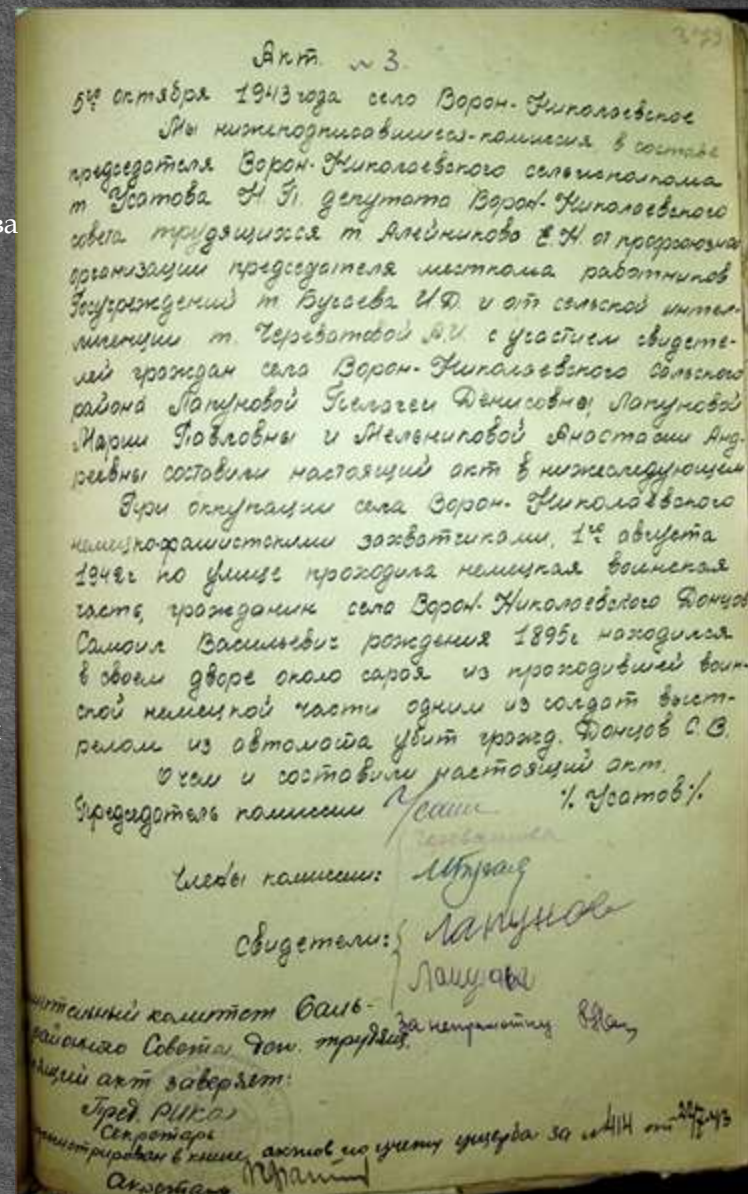 ва
379
Акт №3.
5го октября 1943 года село Ворон-Николаевское
Мы нижеподписавшиеся-комиссия в составе
председателя Ворон-Николаевского сельисполкома
т Усатова Н П. депутата Ворон-Николаевского
совета трудящихся т Алейниково Е.Н. от профсоюзной
организации председателя месткома работников
Госучреждений т Бугаева И.Д. и от сельской интел-
лигенции т. Череватовой А.И. с участием свидете-
лей граждан села Ворон-Николаевского Сальского
района Лапуновой Пелагеи Денисовны, Лапуновой
Марии Павловны и Мельниковой Анастасии Анд-
реевны составили настоящий акт в нижеследующем
При оккупации села Ворон-Николаевского
немецко-фашистскими захватчиками, 1го августа
1942г по улице проходила немецкая воинская
часть, гражданин село Ворон-Николаевского Донцов
Самоил Васильевич рождения 1895г находился
в своем дворе около сарая из проходившей воин-
ской немецкой части одним из солдат выст-
релом из автомата убит гражд. Донцов С.В.
О чем и составили настоящий акт.
Председатель комиссии Усатов /. Усатов/.
Череватова
Члены комиссии:
Свидетели: Лапунов
Лапунова
за неграмотную
комитет Саль-
районного Совета Деп. трудящ.
акт заверяет:
Пред. РИКа
Секретарь
в книге актов по учету ущерба за №414 от